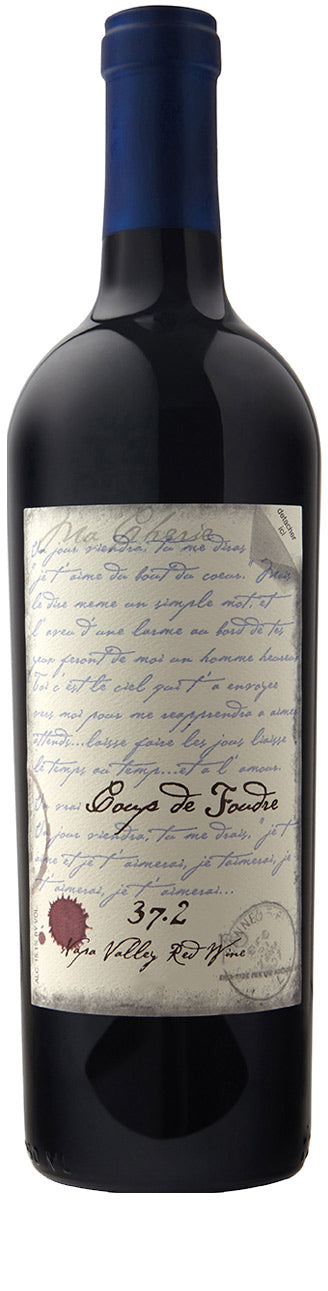 detacher
ici
Ma Cherie
Un jour viendra, tu me diras
"je t'aime du bout du coeur." Mais
le dire meme un simple mot, et
l'aveu d'une larme au bord de tes
yeux feront de moi un homme heureux
Toi c'est le ciel qui t'a envoyee
vers moi pour me reapprendra a aimer
attends...laisse faire les jours laisse
le temps au temps...et a l'amour.
Un vrai Coup de Foudre
Un jour viendra, tu me drais, "je t'
aime et je t'aimerai, je t'aimerai, je
t'aimerai, je t'aimerai...
37.2
Napa Valley Red Wine